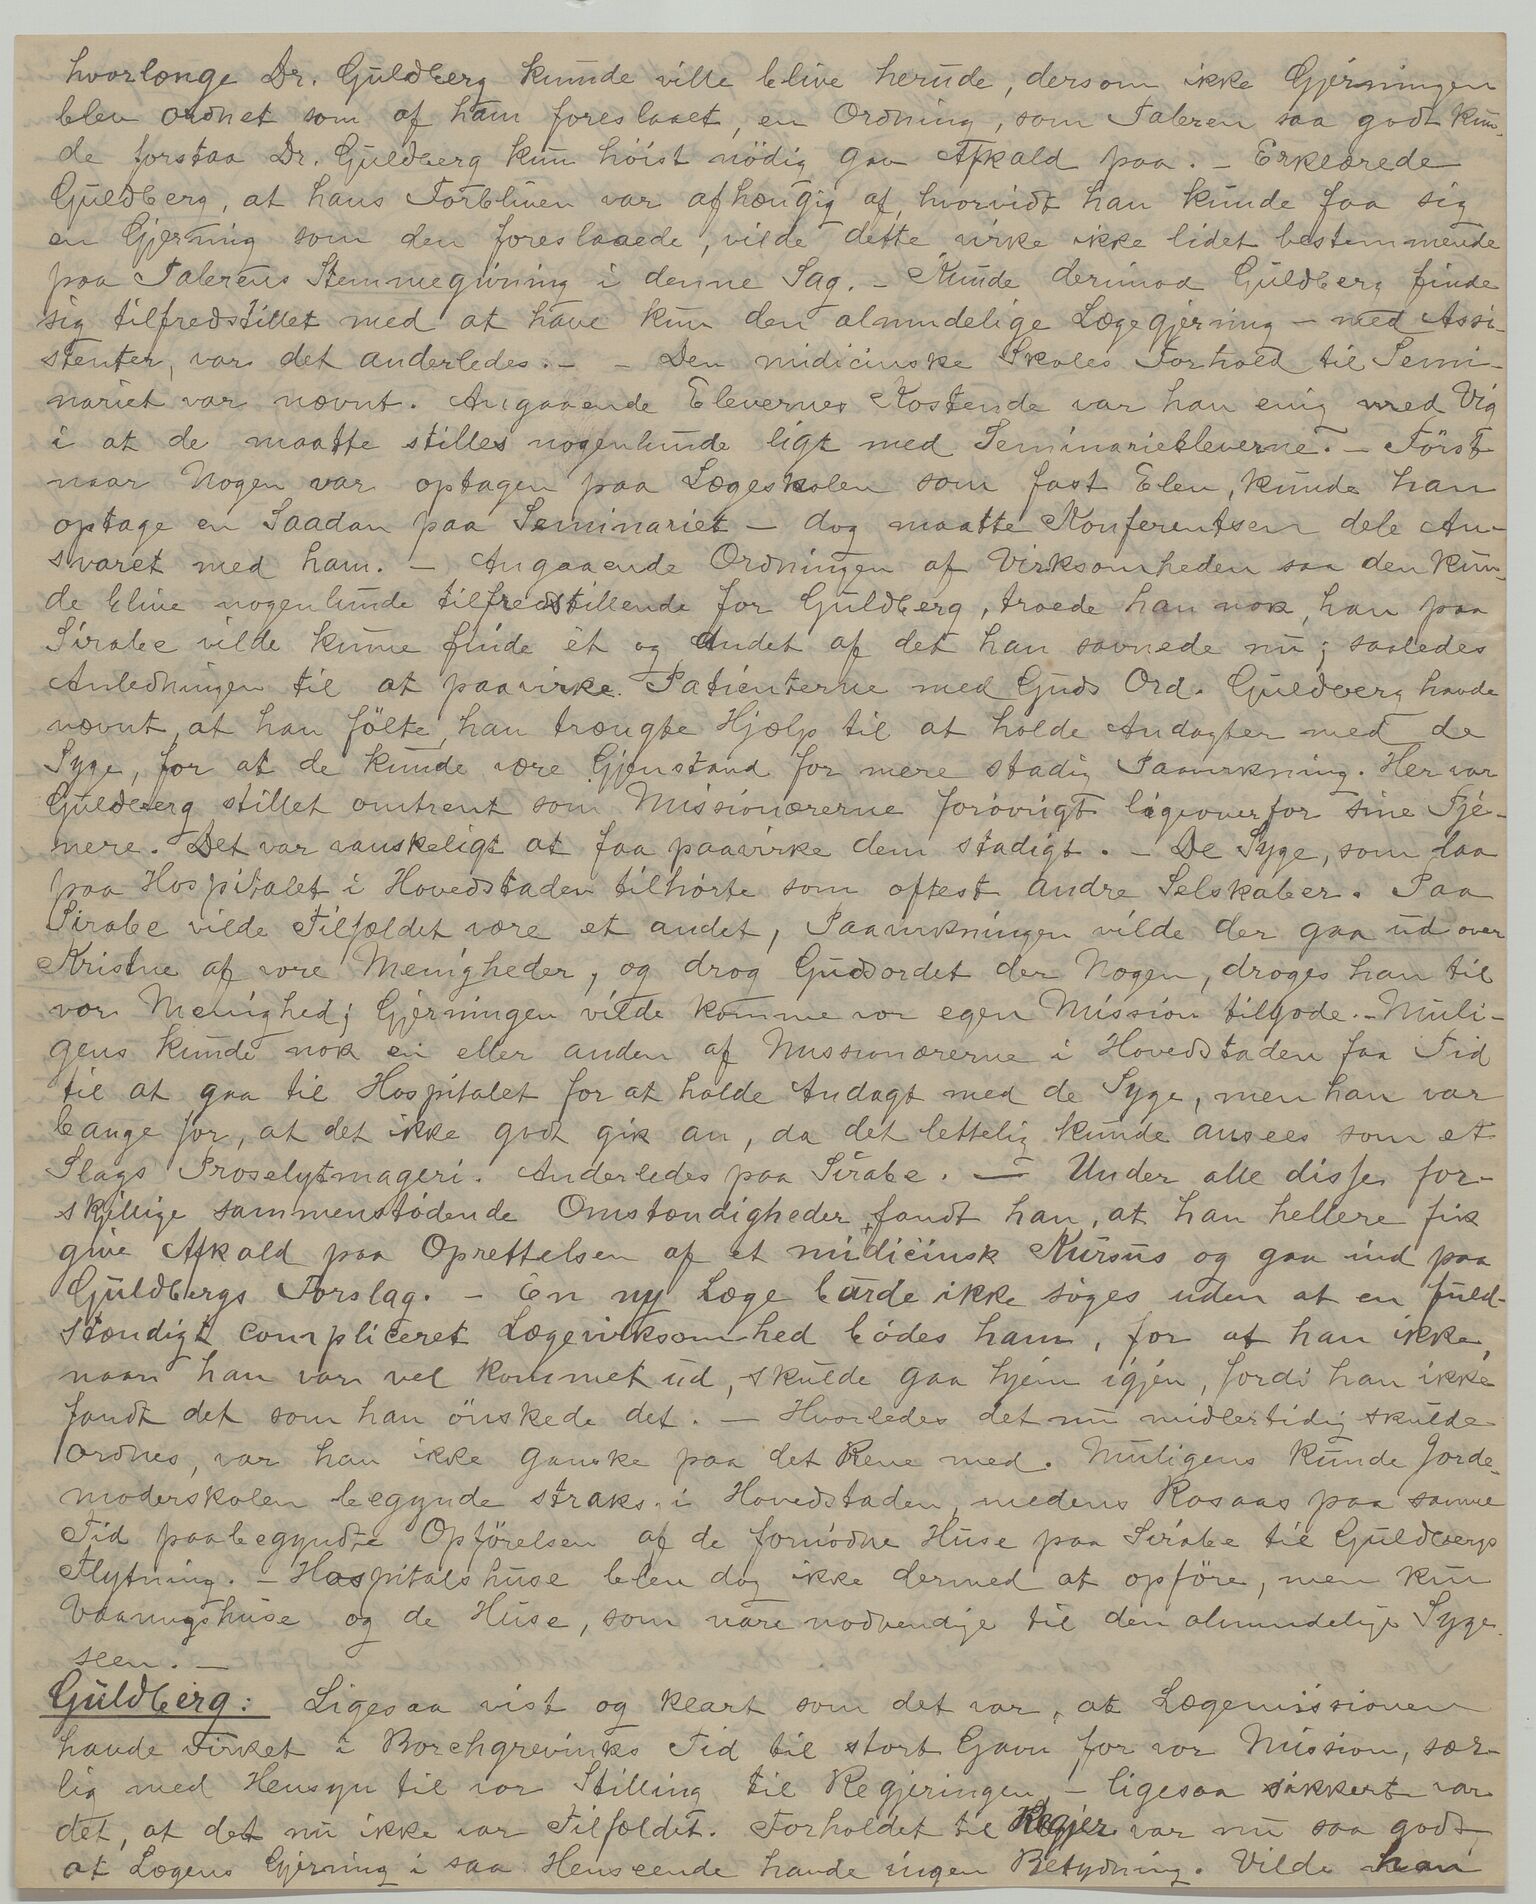 hvorlænge Dr. Guldberg kunde ville blive herude, dersom ikke Gjerningen
blev ordnet som af ham foreslaaet, en Ordning, som Taleren saa godt kun-
de forstaa Dr. Guldberg kun høist nödig gav Afkald paa. - Erklærede
Guldberg, at hans Forbliven var afhængig af, hvorvidt han kunde faa sig
en Gjerning som den foreslaaede, vilde dette virke ikke lidet bestemmende
paa Talerens Stemmegivning i denne Sag. - Kunde derimod Guldberg finde
sig tilfredstillet med at have kun den almindelige Lægegjerning - med Assi-
stenter, var det anderledes. - - Den midicinske Skoles Forhold til Semi-
nariet var nævnt. Angaaende Elevernes Kostende var han enig med Vig
i at de maatte stilles nogenlunde ligt med Seminarieeleverne. - Först
naar Nogen var optagen paa Lægeskolen som fast Elev, kunde han
optage en Saadan paa Seminariet - dog maatte Konferentsen dele An-
svaret med ham. - Angaaende Ordningen af Virksomheden saa den kun-
de blive nogenlunde tilfredstillende for Guldberg, troede han nok, han paa
Sirabe vilde kunne finde èt og andet af det han savnede nu; saaledes
Anledningen til at paavirke Patienterne med Guds Ord. Guldberg havde
nævnt, at han fölte, han trængte Hjælp til at holde Andagter med de
Syge, for at de kunde være Gjenstand for mere stadig Paavirkning. Her var
Guldberg stillet omtrent som Missionærerne forövrigt ligeoverfor sine Tje-
nere. Det var vanskeligt at faa paavirke dem stadigt. - De Syge, som laa
paa Hospitalet i Hovedstaden tilhörte som oftest andre Selskaber. Paa
Sirabe vilde Tilfældet være et andet, Paavirkningen vilde der gaa ud over
Kristne af vore Menigheder, og drog Gudsordet der Nogen, droges han til
vor Menighed; Gjerningen vilde komme vor egen Mission tilgode. - Muli-
gens kunde nok en eller anden af Missionærerne i Hovedstaden faa Tid
til at gaa til Hospitalet for at holde Andagt med de Syge, men han var
bange for, at det ikke godt gik an, da det lettelig kunde ansees som et
Slags Proselytmageri. Anderledes paa Sirabe. - Under alle disse for-
skjellige sammenstödende Omstændigheder, fandt han, at han hellere fik
give Afkald paa Oprettelsen af et midicinsk Kursus og gaa ind paa
Guldbergs Forslag. - En ny Læge burde ikke söges uden at en fuld-
stændigt compliceret Lægevirksomhed bödes ham, for at han ikke,
naar han var vel kommet ud, skulde gaa hjem igjen, fordi han ikke
fandt det som han önskede det. - Hvorledes det nu midlertidig skulde
ordnes, var han ikke ganske paa det Rene med. Muligens kunde Jorde-
moderskolen begynde straks i Hovedstaden, medens Rosaas paa samme
Tid paabegyndte Opförelsen af de fornödne Huse paa Sirabe til Guldbergs
Flytning. - Hospitalshuse blev dog ikke dermed at opföre, men kun
Vaaningshuse og de Huse, som vare nödvendige til den almindelige Syge-
seen. -
Guldberg: Ligesaa vist og klart som det var, at Lægemissionen
havde virket i Borchgrevinks Tid til stort Gavn for vor Mission, sær-
lig med Hensyn til vor Stilling til Regjeringen, - ligesaa sikkert var
det, at det nu ikke var Tilfældet. Forholdet til Regjer. var nu saa godt
at Lægens Gjerning i saa Henseende havde ingen Betydning. Vilde han